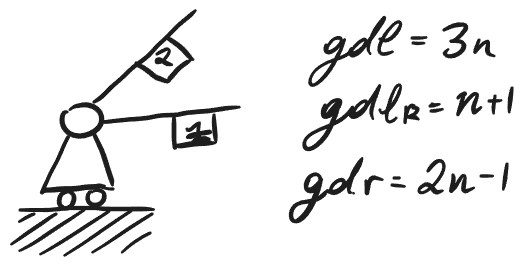 2
1
gdl = 3n
gdl_R = n+1
gdr = 2n-1